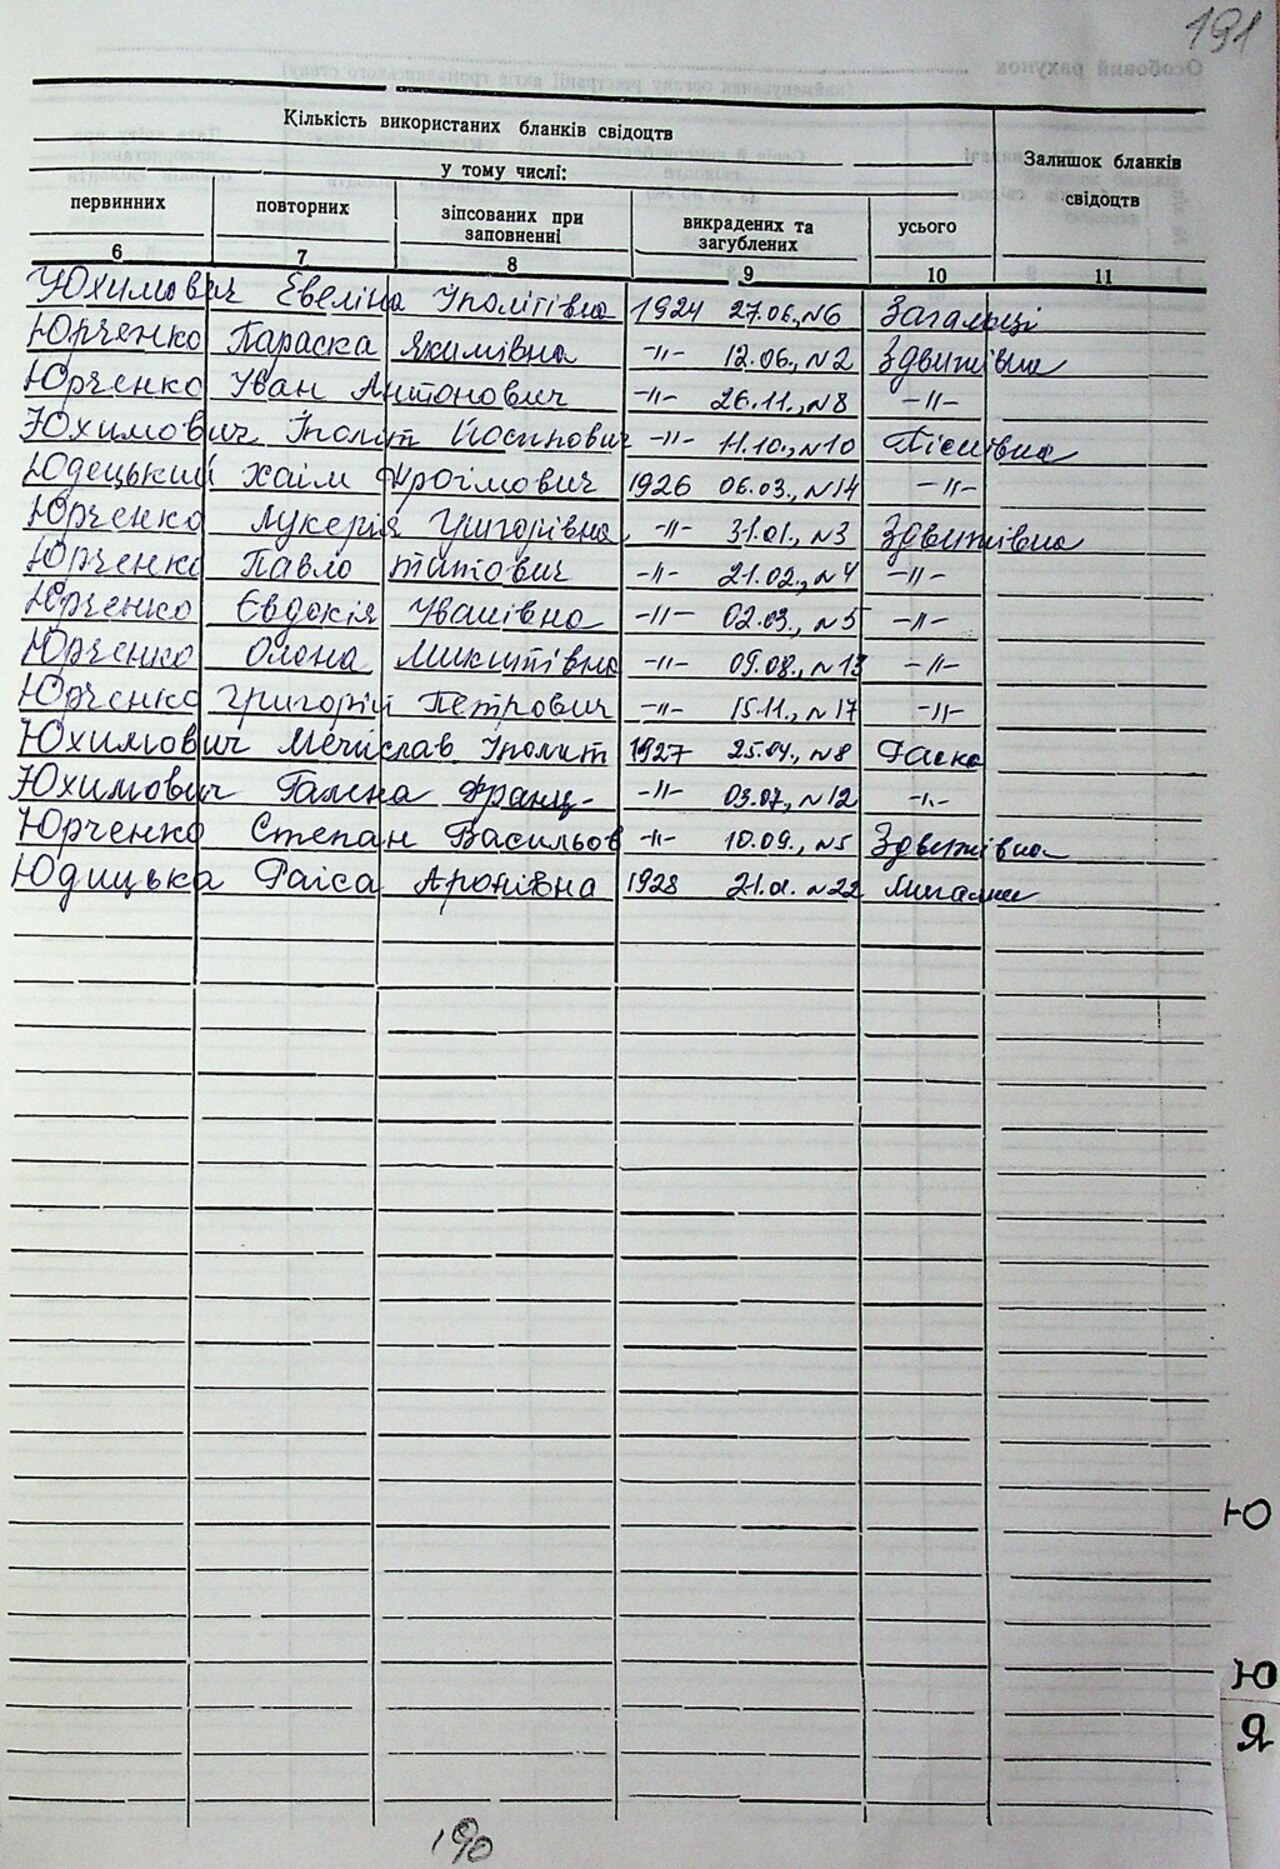 191
Кількість використаних бланків свідоцтв
у тому числі:
Залишок бланків свідоцтв
первинних повторних зіпсованих при заповненні викрадених та загублених усього
6 7 8 9 10 11
Юхимович Евеліна Іполітівна 1924 27.06., N6 Загальці
Юрченко Параска Якимівна -//- 12.06., N2 Здвижівка
Юрченко Іван Антонович -//- 26.11., N8 -//-
Юхимович Іполит Йосипович -//- 11.10., N10 Пісківка
Юдецький Хаїм Фроїмович 1926 06.03., N14 -//-
Юрченко Лукерія Григорівна -//- 31.01., N3 Здвижівка
Юрченко Павло Титович -//- 21.02., N4 -//-
Юрченко Євдокія Іванівна -//- 02.03., N5 -//-
Юрченко Олена Микитівна -//- 09.08., N13 -//-
Юрченко Григорій Петрович -//- 15.11., N17 -//-
Юхимович Мечислав Іполит 1927 25.04., N8 Раска
Юхимович Галина Франц- -//- 03.07., N12 -//-
Юрченко Степан Васильов -//- 10.09., N5 Здвижівка
Юдицька Раїса Аронівна 1928 21.01. N22
Ю
Ю
Я
190